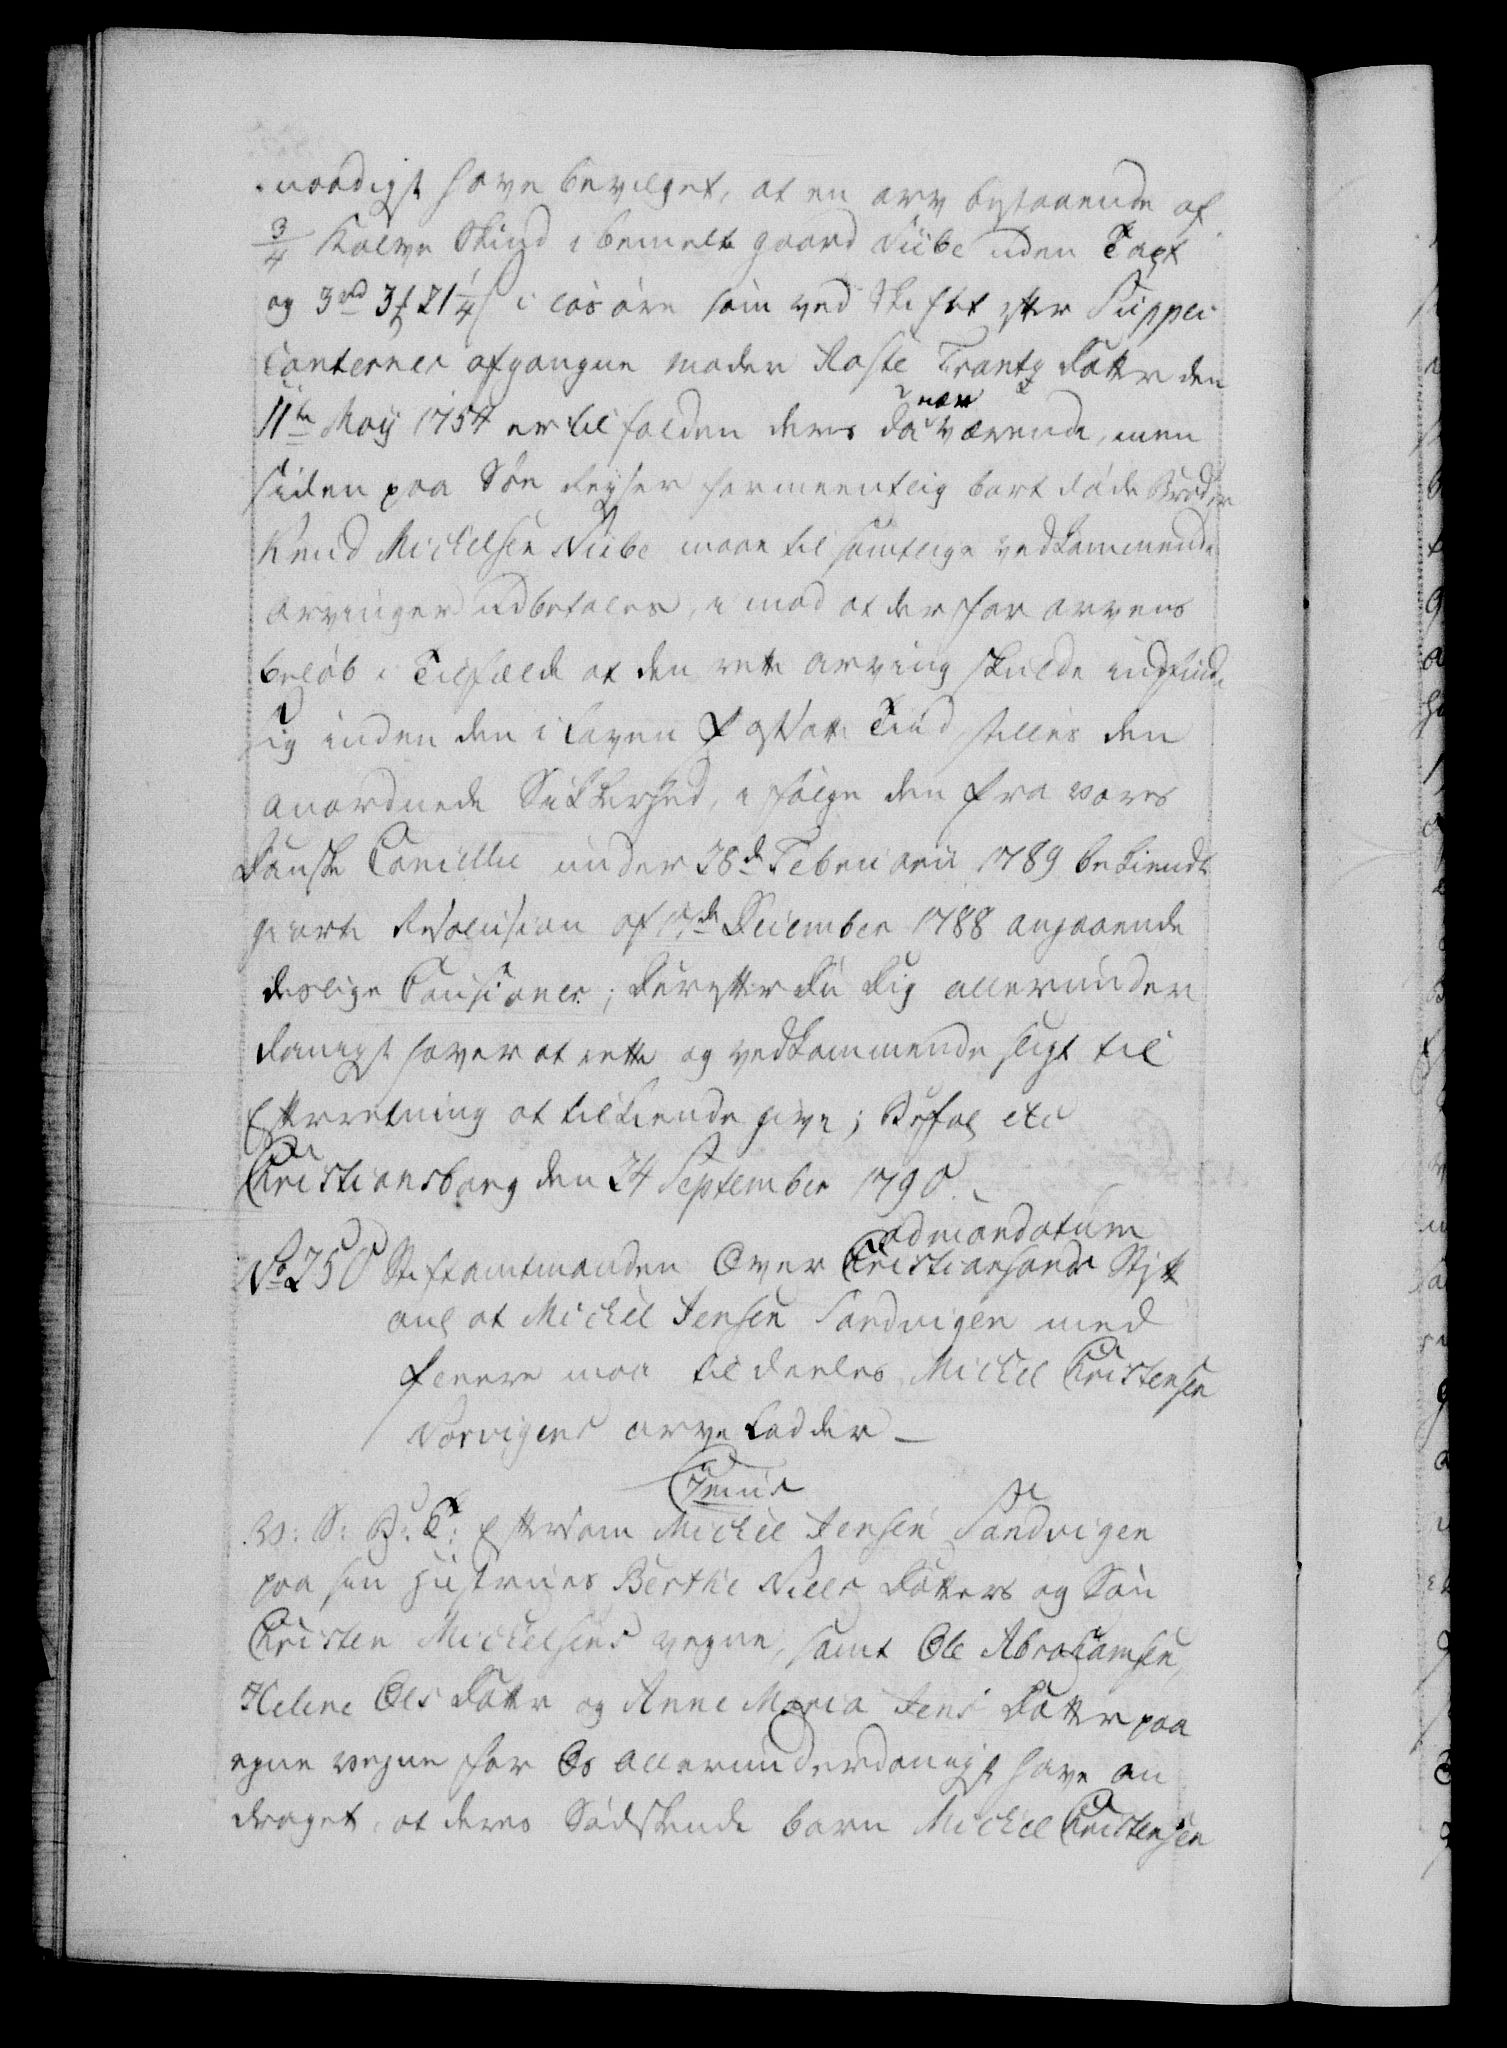 naadigst have bevilget, at en arv bestaaende af
3/4 Kalve Skind i bemelte gaard Niibe uden Taxt
og 3 rd 3 ₰ 21 1/4 s i løsøre som ved Skiftet efter Suppli
canternes afgangne moder Aaste Trants Datter den
11te May 1754 er tilfalden deres da nær værende, men
siden paa Søe Reyser formeentlig bortdøde Broder
Knud Michelsen Niibe maae til samtlige vedkommende
arvinger udbetales, imod at der for arvens
beløb i Tilfælde at den rette arving skulde indfinde
sig inden den i Loven fastsatte Tiid, stilles den
anordnede Sikkerhed, i følge den fra vores
Danske Cancellie under 28de Februarii 1789 bekiendt
giorte Resolution af de December 1788 angaaende
deslige Cautioner; Derefter Du Dig allerunder
danigst haver at rette og vedkommende sligt til
Efterretning at tilkiende give; Befal etc
Christiansborg den 24 September 1790.
ad mandatum
No 250 Stiftamtmanden Over Christiansands Stift
anl at Michel Jensen Sandvigen med
fleere maa tildeeles Michel Christensen
Norvigens arve Lodder —
Genius
V: G: B: T: Eftersom Michel Jensen Sandvigen
paa sin Hustrues Berthe Niels Datters og Søn
Christen Michelsens vegne, samt Ole Abrahamsen,
Helene Ols Datter og Anne Maria Jens Datter paa
egne vegne for Os allerunderdanigst have an
draget, at deres Sødskende barn Michel Christensen